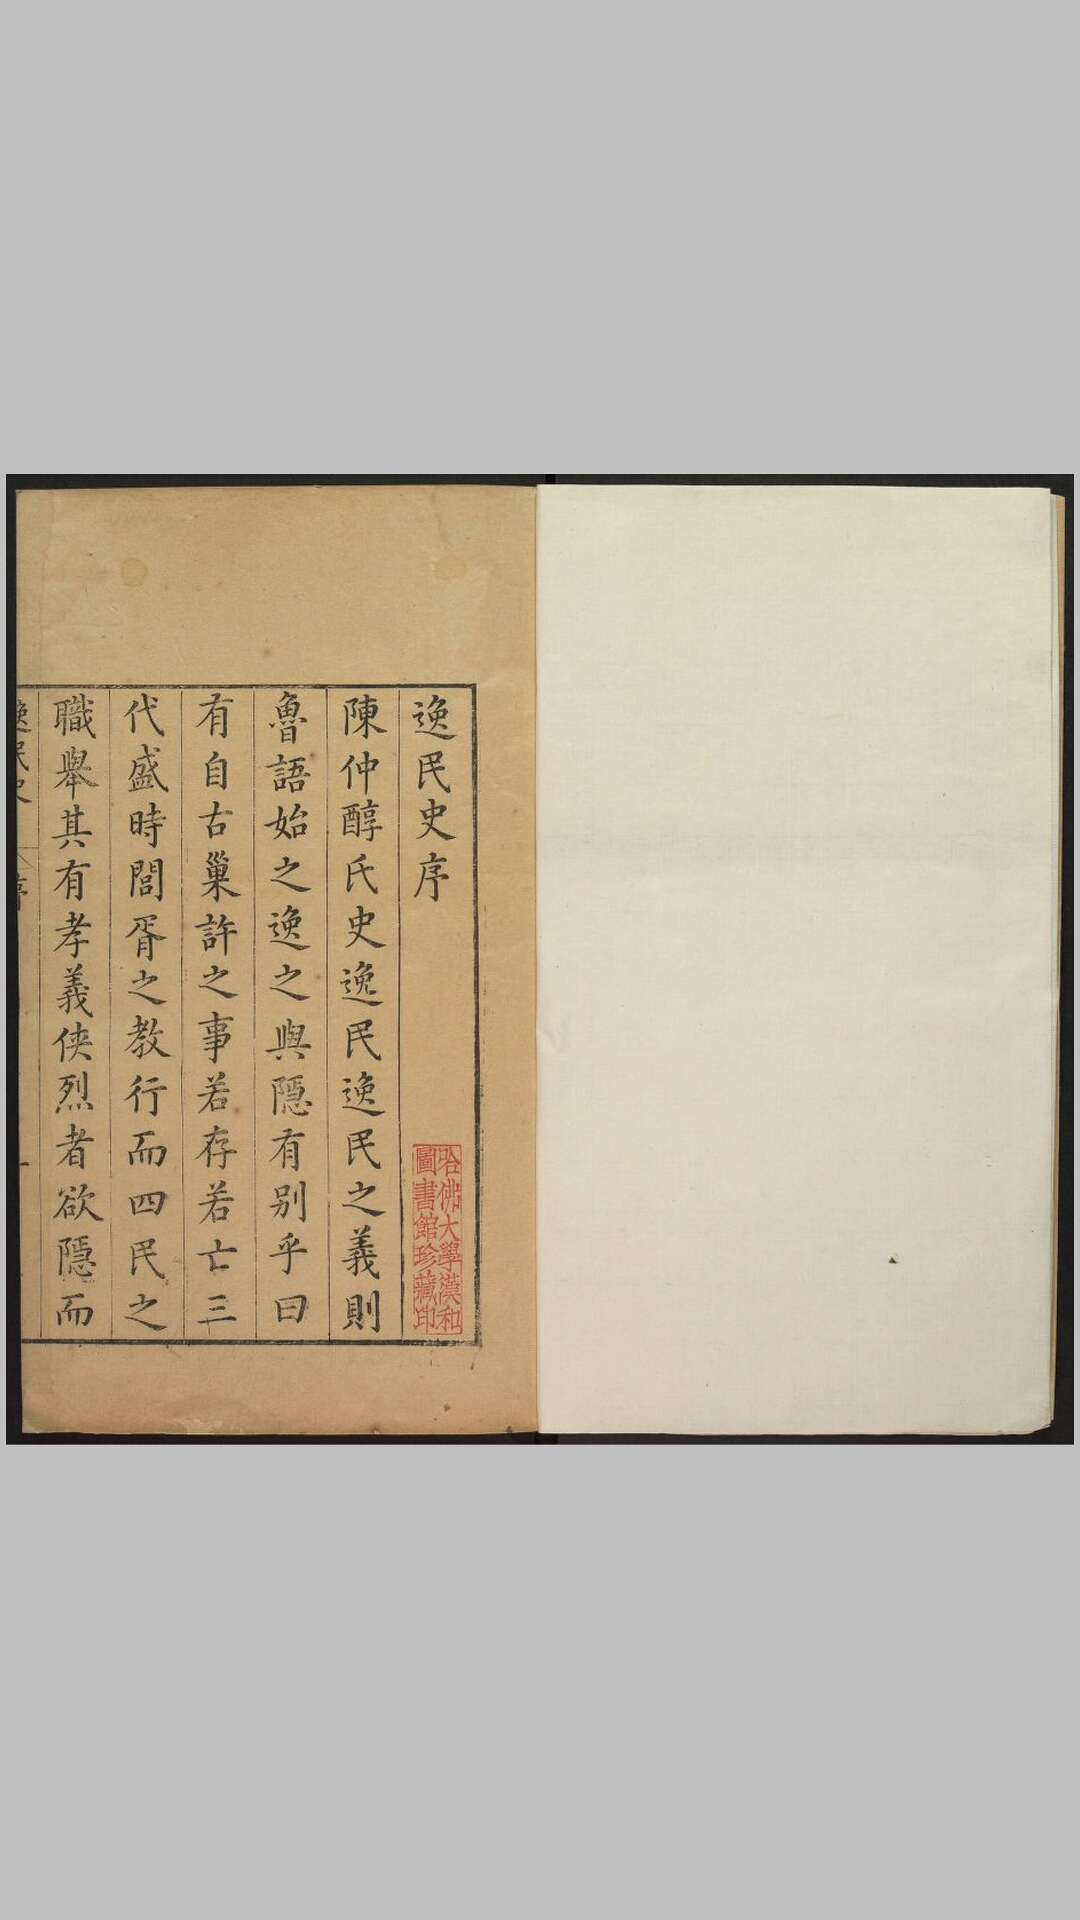 逸民史序
哈佛大學漢和
圖書館珍藏印
陳仲醇氏史逸民逸民之義則
魯語始之逸之與隱有別乎曰
有自古巢許之事若存若亡三
代盛時閭胥之教行而四民之
職舉其有孝義俠烈者欲隱而
逸民史 序 一